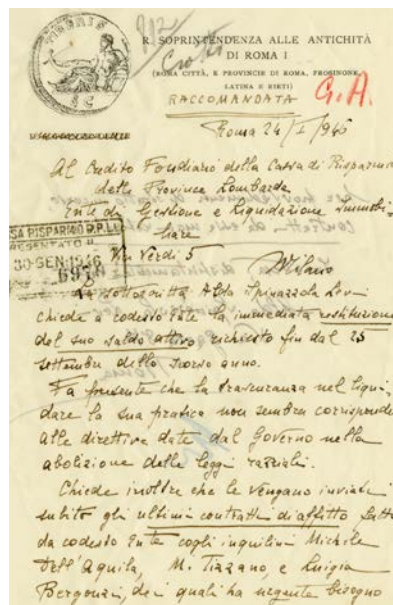 TIBERIS
S C
R. SOPRINTENDENZA ALLE ANTICHITÀ
DI ROMA I
(ROMA CITTÀ, E PROVINCIE DI ROMA, FROSINONE,
LATINA E RIETI)
RACCOMANDATA
G.A.
Roma 24/I/1946
Al Credito Fondiario della Cassa di Risparmio
delle Provincie Lombarde
Ente di Gestione e Liquidazione Immobi-
liare
Via Verdi 5
Milano
SA RISPARMIO P.P.L.
PRESENTATO IL
30.GEN.1946
697
La sottoscritta Alda Spinazzola Levi
chiede a codesto Ente la immediata restituzione
del suo saldo attivo richiesto fin dal 25
settembre dello scorso anno.
Fa presente che la trascuranza nel liqui-
dare la sua pratica non sembra corrisponde
alle direttive date dal Governo nella
abolizione delle leggi razziali.
Chiede inoltre che le vengano inviati
subito gli ultimi contratti di affitto fatti
da codesto Ente cogli inquilini Michele
Dell'Aquila, M. Tizzano, e Luigia
Bergonzi, dei quali ha urgente bisogno